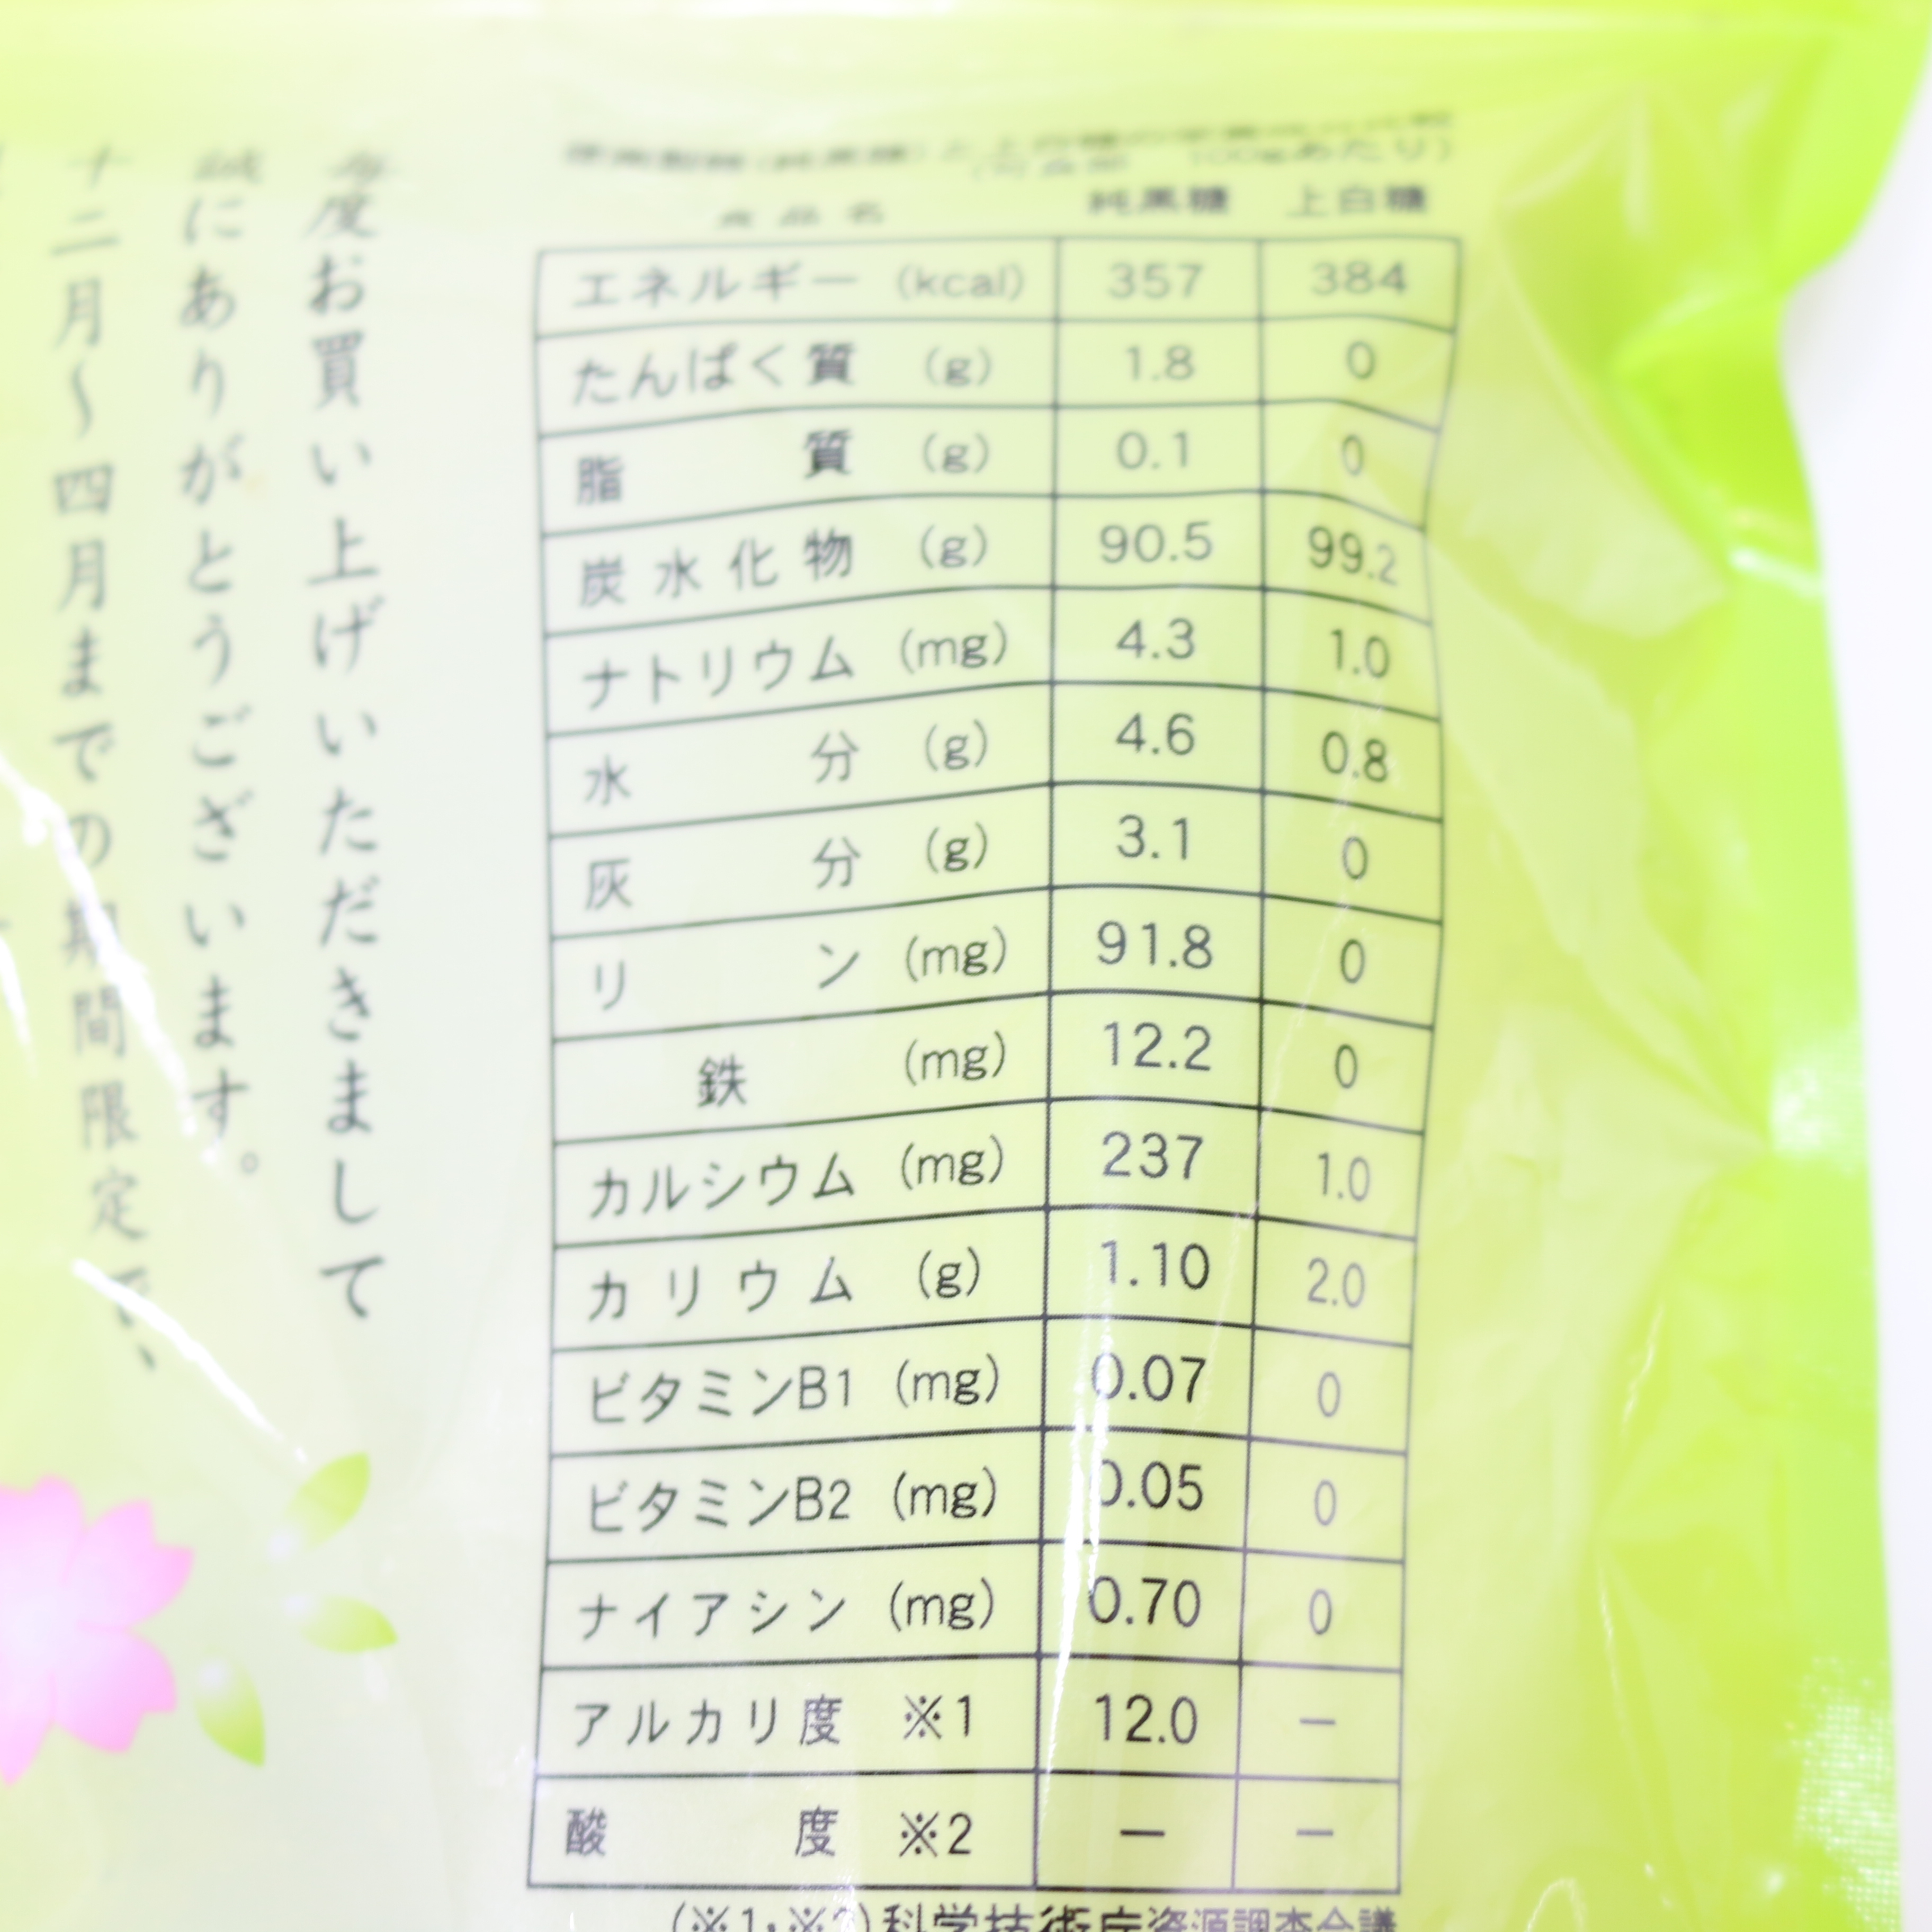 (可食部 100gあたり)
食品名 純黒糖 上白糖
エネルギー (kcal) 357 384
たんぱく質 (g) 1.8 0
脂質 (g) 0.1 0
炭水化物 (g) 90.5 99.2
ナトリウム (mg) 4.3 1.0
水分 (g) 4.6 0.8
灰分 (g) 3.1 0
リン (mg) 91.8 0
鉄 (mg) 12.2 0
カルシウム (mg) 237 1.0
カリウム (g) 1.10 2.0
ビタミンB1 (mg) 0.07 0
ビタミンB2 (mg) 0.05 0
ナイアシン (mg) 0.70 0
アルカリ度 ※1 12.0 −
酸度 ※2 − −
(※1,※2)科学技術庁資源調査会議
毎度お買い上げいただきまして
誠にありがとうございます。
十二月〜四月までの期間限定で、